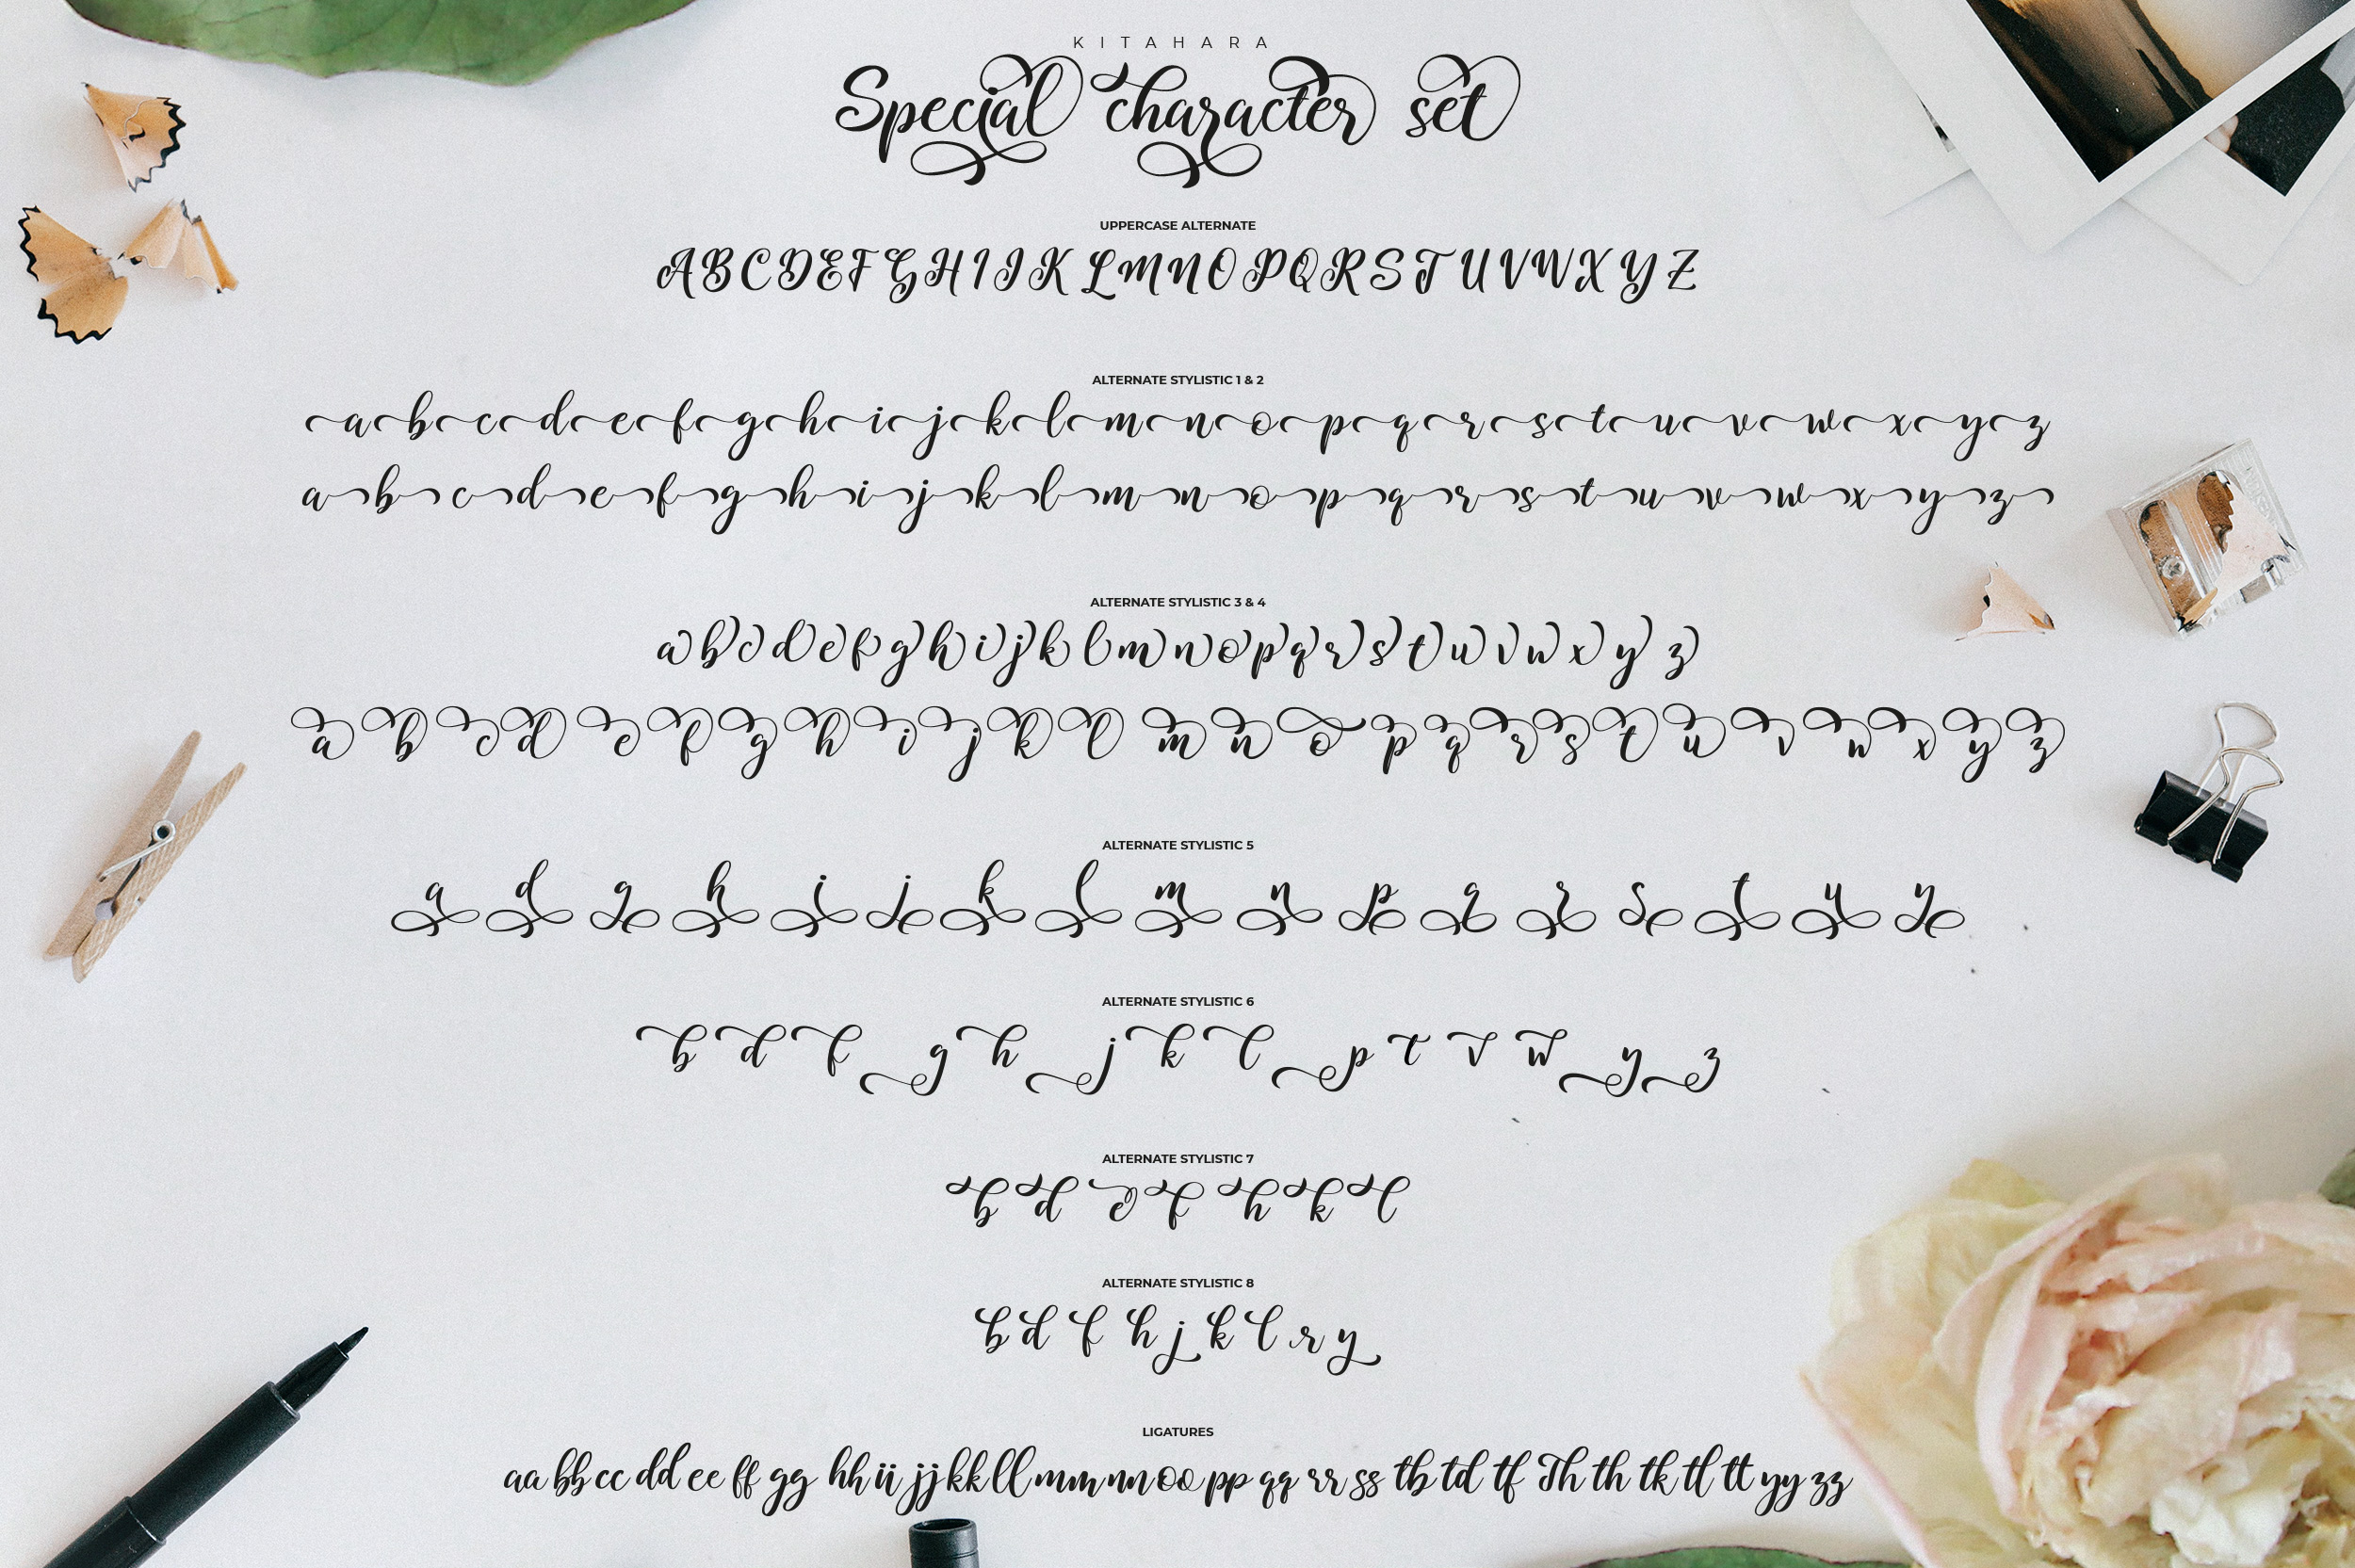 KITAHARA
Special character set
UPPERCASE ALTERNATE
ABCDEFGHIJKLMNOPQRSTUVWXYZ
ALTERNATE STYLISTIC 1 & 2
a b c d e f g h i j k l m n o p q r s t u v w x y z
a b c d e f g h i j k l m n o p q r s t u v w x y z
ALTERNATE STYLISTIC 3 & 4
a b c d e f g h i j k l m n o p q r s t u v w x y z
a b c d e f g h i j k l m n o p q r s t u v w x y z
ALTERNATE STYLISTIC 5
a d g h i j k l m n p q r s t u y
ALTERNATE STYLISTIC 6
b d f g h j k l p t v w y z
ALTERNATE STYLISTIC 7
b d e f h k l
ALTERNATE STYLISTIC 8
b d f h j k l r y
LIGATURES
aa bb cc dd ee ff gg hh ii jj kk ll mm nn oo pp qq rr ss tb td tf Th th tk tl tt yy zz